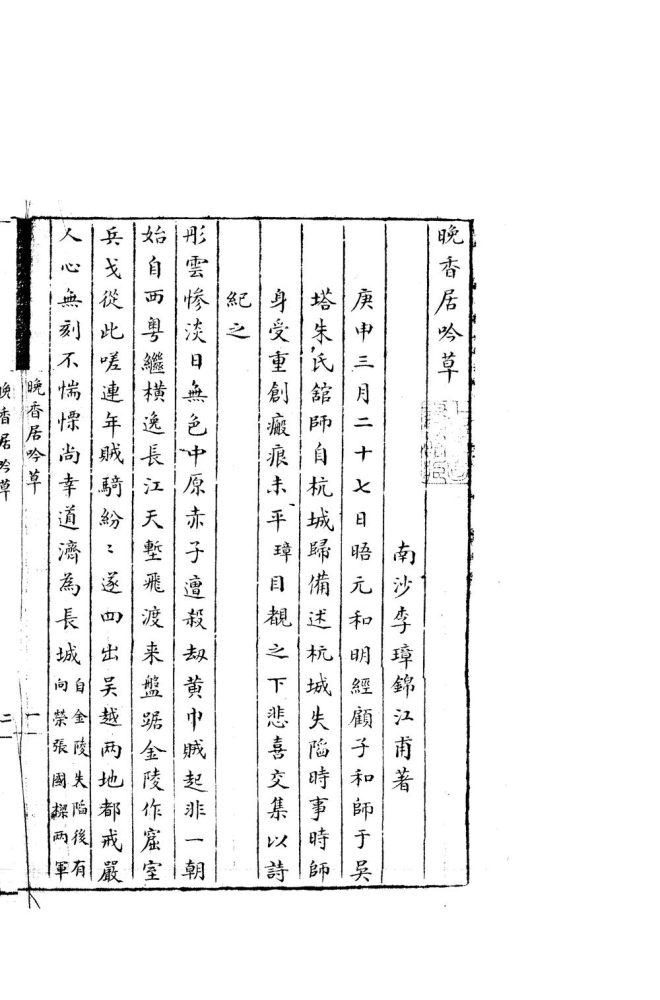 晚香居吟草
南沙李璋錦江甫著
庚申三月二十七日晤元和明經顧子和師于吳
塔朱氏舘師自杭城歸備述杭城失陷時事時師
身受重創瘢痕未平璋目覩之下悲喜交集以詩
紀之
彤雲慘淡日無色中原赤子遭殺劫黃巾賊起非一朝
始自西粵繼橫逸長江天塹飛渡来盤踞金陵作窟室
兵戈從此嗟連年賊騎紛〻遂四出吴越兩地都戒嚴
人心無刻不惴慄尚幸道濟為長城
自金陵失陷後有
向榮張國樑兩軍
晚香居吟草
一
晚香居吟草
二